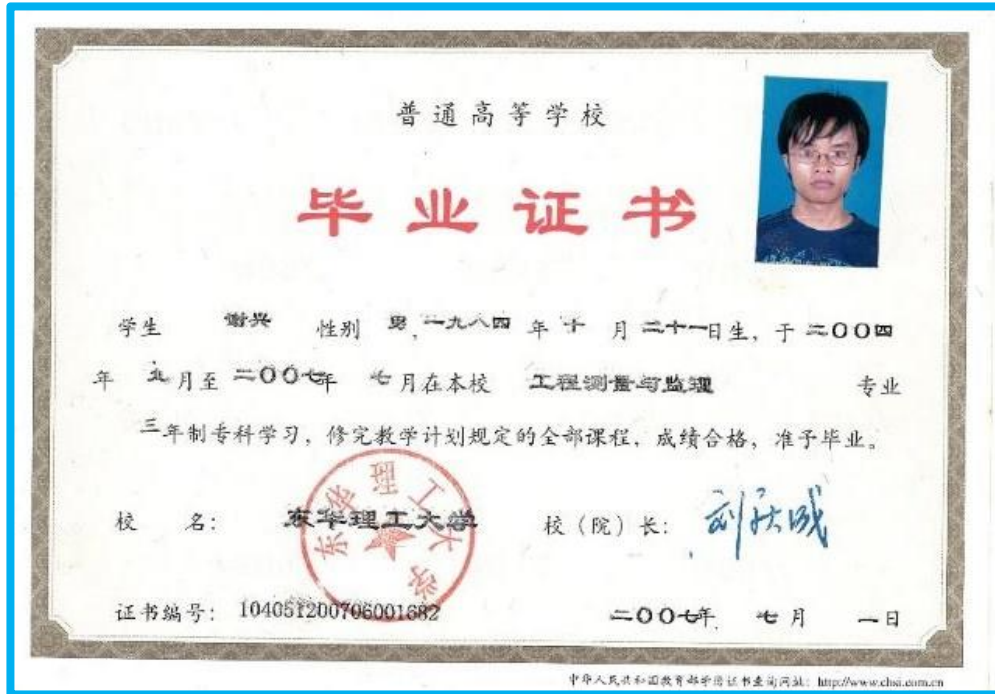 普通高等学校
毕业证书
学生 谢兴 性别 男,一九八四 年 十 月 二十一日生,于 二〇〇四
年 九月至 二〇〇七年 七月在本校 工程测量与监理 专业
三年制专科学习,修完教学计划规定的全部课程,成绩合格,准予毕业。
校 名: 东华理工大学 校(院)长: 刘庆成
东华理工大学
证书编号: 104051200706001682 二〇〇七年 七月 一日
中华人民共和国教育部学历证书查询网址: http://www.chsi.com.cn